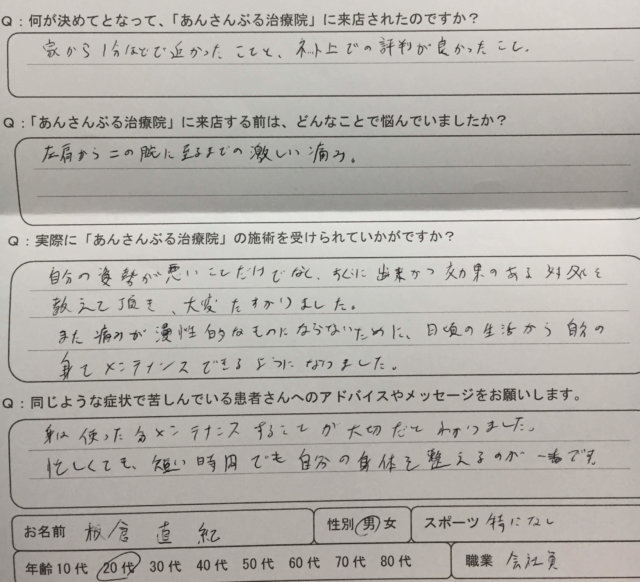 Q：何が決めてとなって、「あんさんぶる治療院」に来店されたのですか？
家から1分ほどで近かったことと、ネット上での評判が良かったこと。
Q：「あんさんぶる治療院」に来店する前は、どんなことで悩んでいましたか？
左肩から二の腕に至るまでの激しい痛み。
Q：実際に「あんさんぶる治療院」の施術を受けられていかがですか？
自分の姿勢が悪いことだけでなく、すぐに出来かつ効果のある対処を
教えて頂き、大変たすかりました。
また痛みが慢性的なものにならないために、日頃の生活から自分の
身でメンテナンスできるようになりました。
Q：同じような症状で苦しんでいる患者さんへのアドバイスやメッセージをお願いします。
身は使った分メンテナンスすることが大切だとわかりました。
忙しくても、短い時間でも自分の身体を整えるのが一番です
お名前 板倉 直紀 性別 男 女 スポーツ 特になし
年齢 10代 20代 30代 40代 50代 60代 70代 80代 職業 会社員